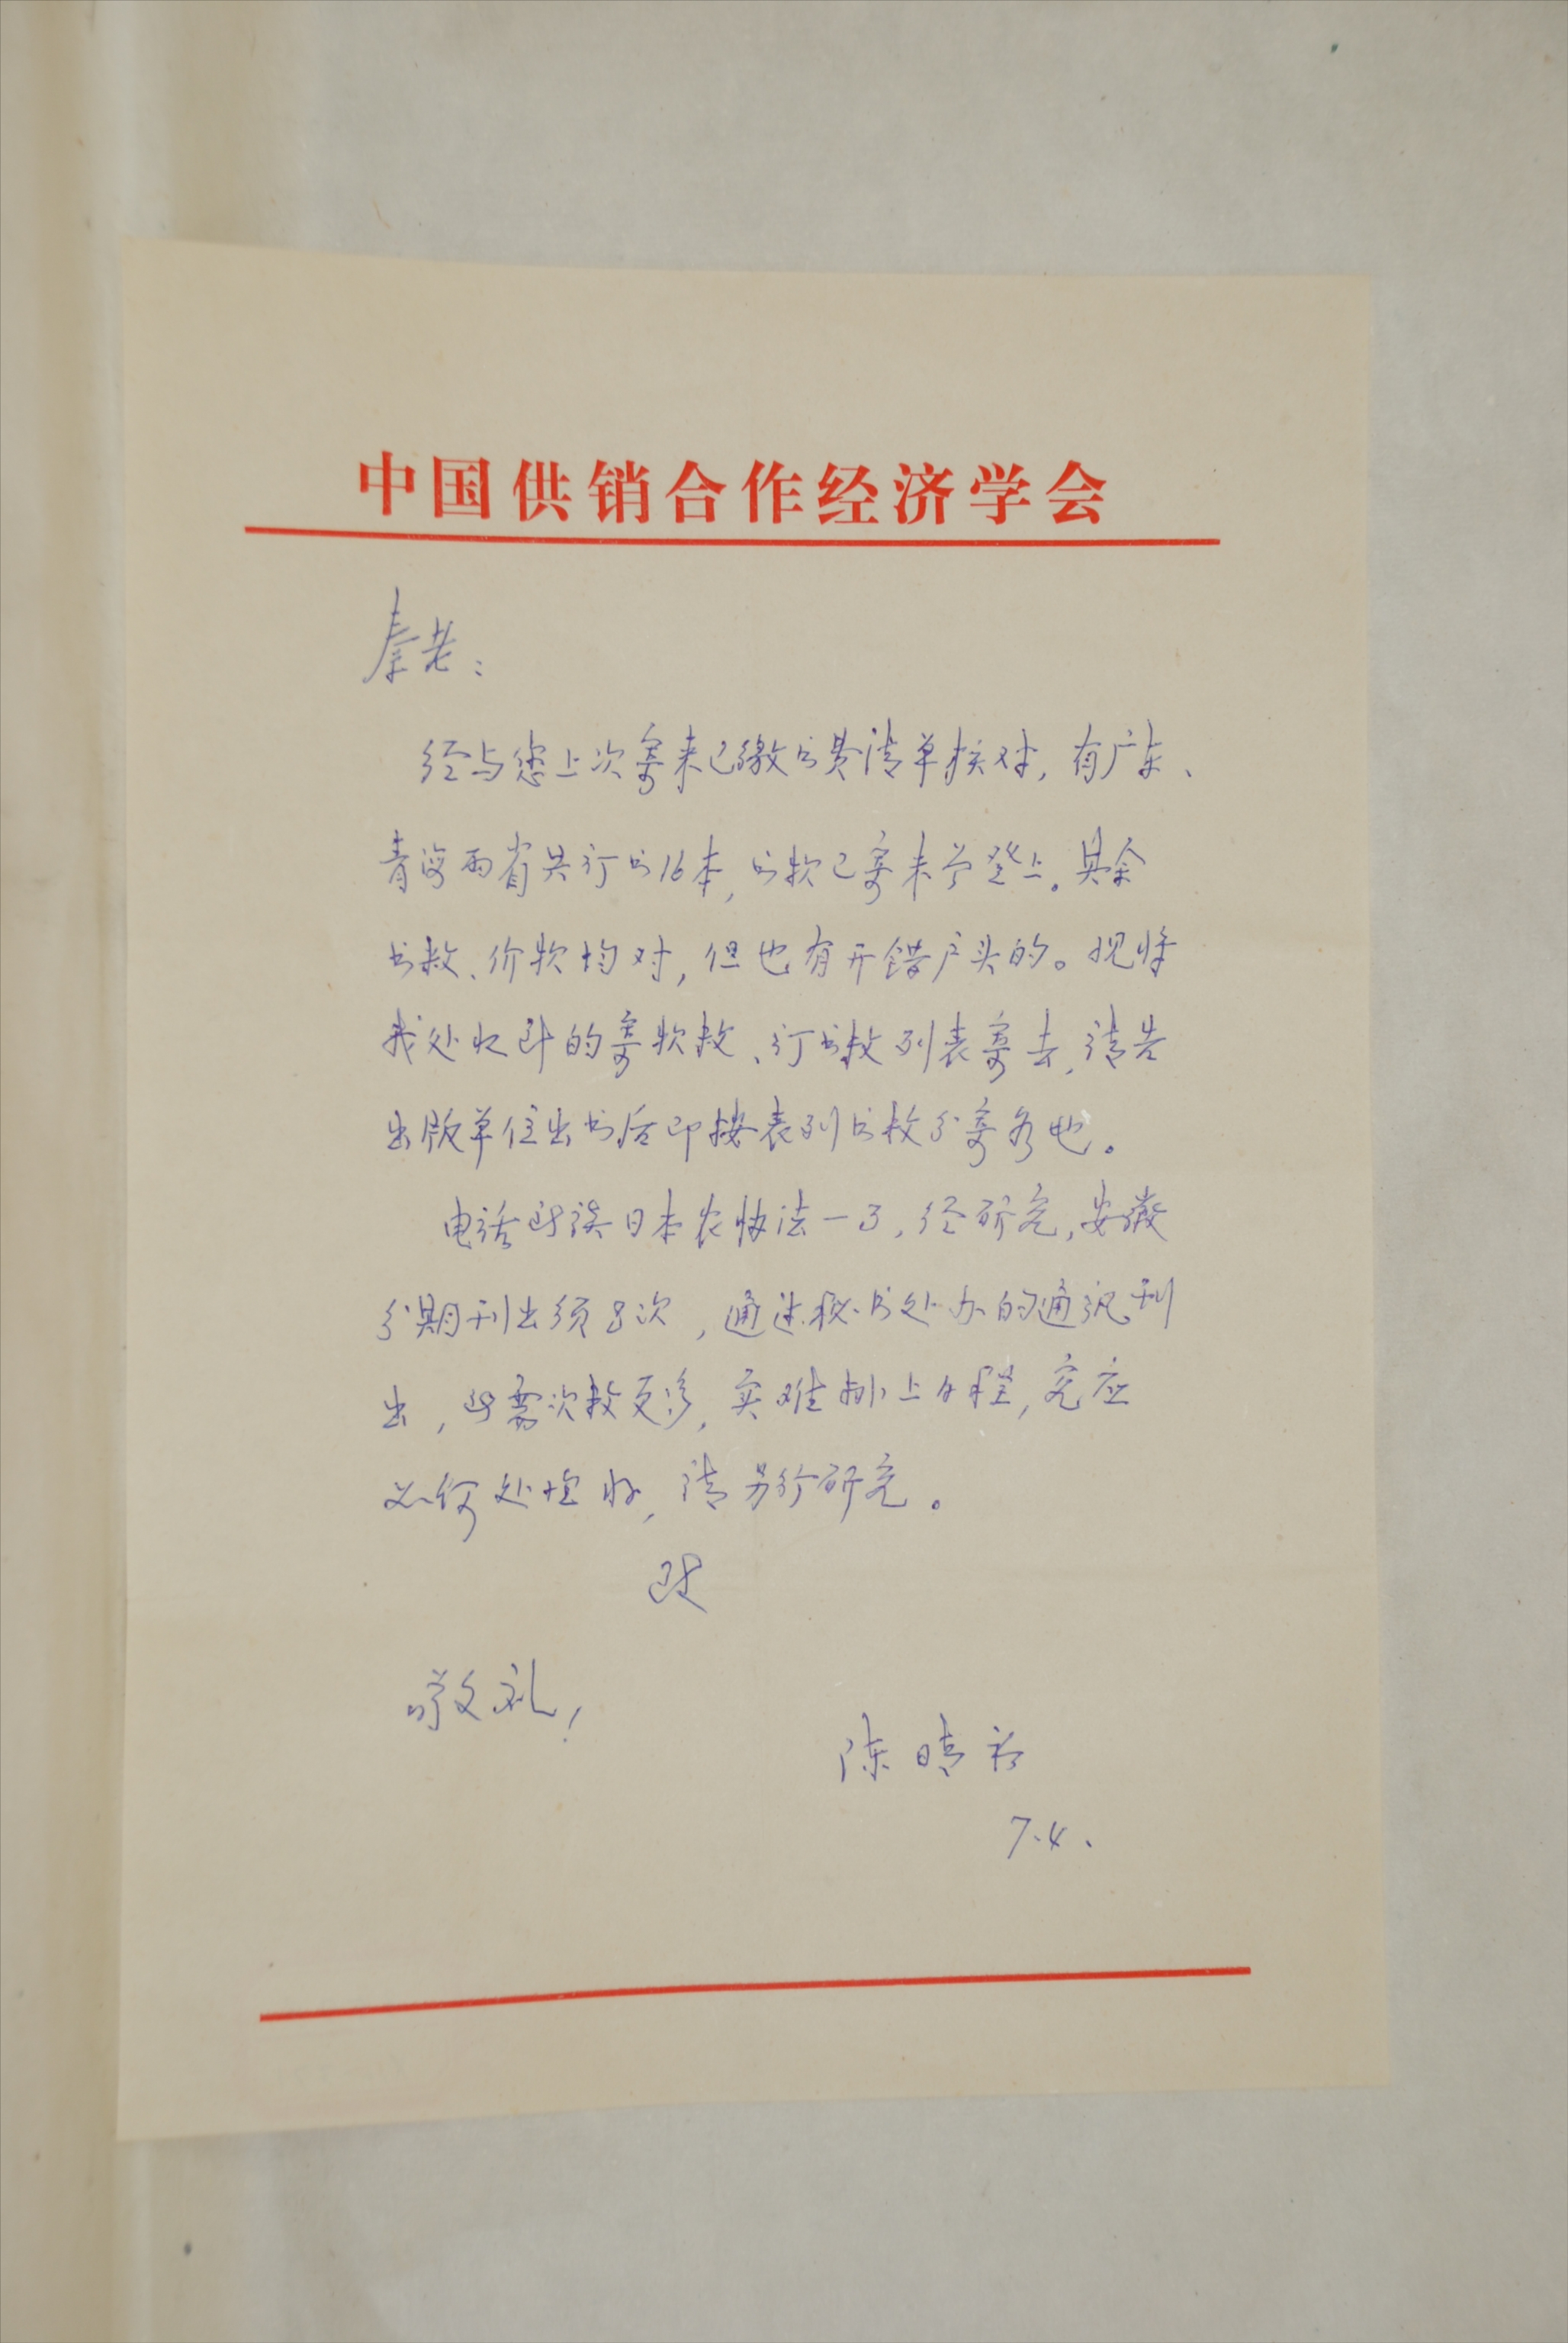 中国供销合作经济学会
秦老：
经与您上次寄来已缴书费清单核对，有广东、
青海两省共订书16本，书款已寄未曾登上。其余
书数、价款均对，但也有开错户头的。现将
我处收到的寄款数、订书数列表寄去，请告
出版单位出书后即按表列书数分寄各地。
电话所谈日本农协法一事，经研究，安徽
分期刊出须8次，通过秘书处办的通讯刊
出，所需次数更多，实难排上日程，究应
如何处理好，请另行研究。
致
敬礼！
陈晴
7.4.